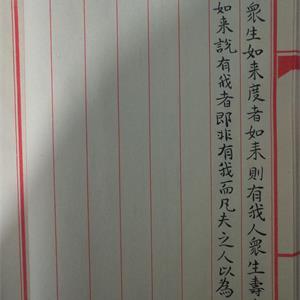 衆生如来度者如来則有我人衆生壽
如来說有我者即非有我而凡夫之人以為